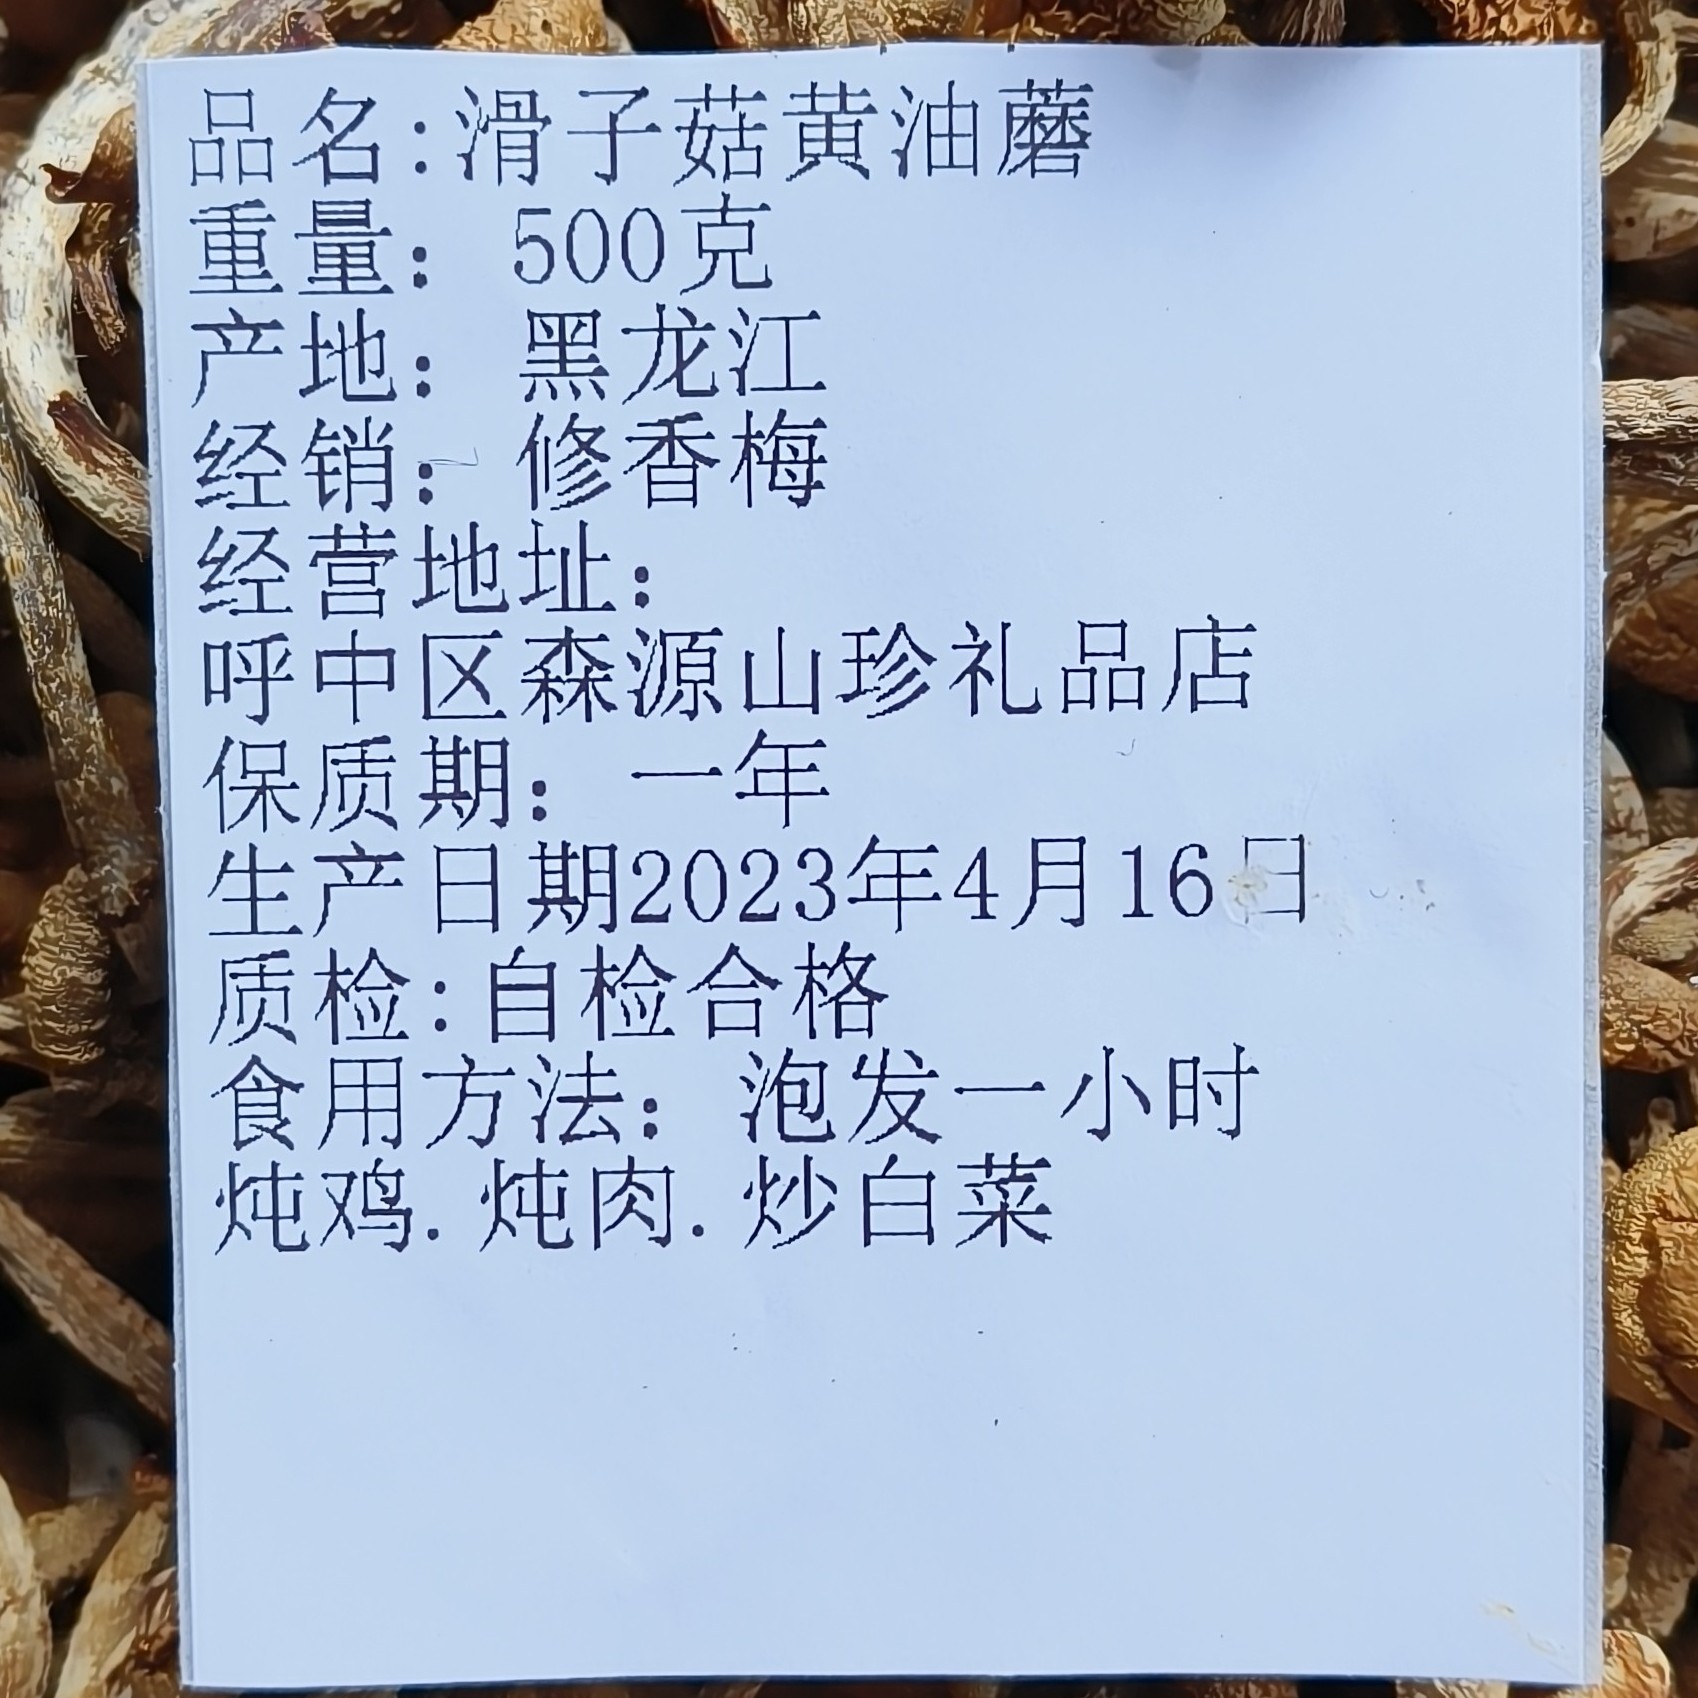 品名:滑子菇黄油蘑
重量：500克
产地：黑龙江
经销：修香梅
经营地址：
呼中区森源山珍礼品店
保质期：一年
生产日期2023年4月16日
质检:自检合格
食用方法：泡发一小时
炖鸡.炖肉.炒白菜